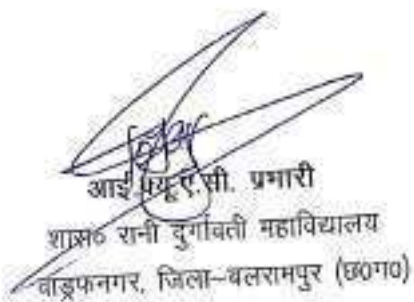 आई.क्यू.ए.सी. प्रभारी
शास० रानी दुर्गावती महाविद्यालय
वाड्रफनगर, जिला-बलरामपुर (छ०ग०)